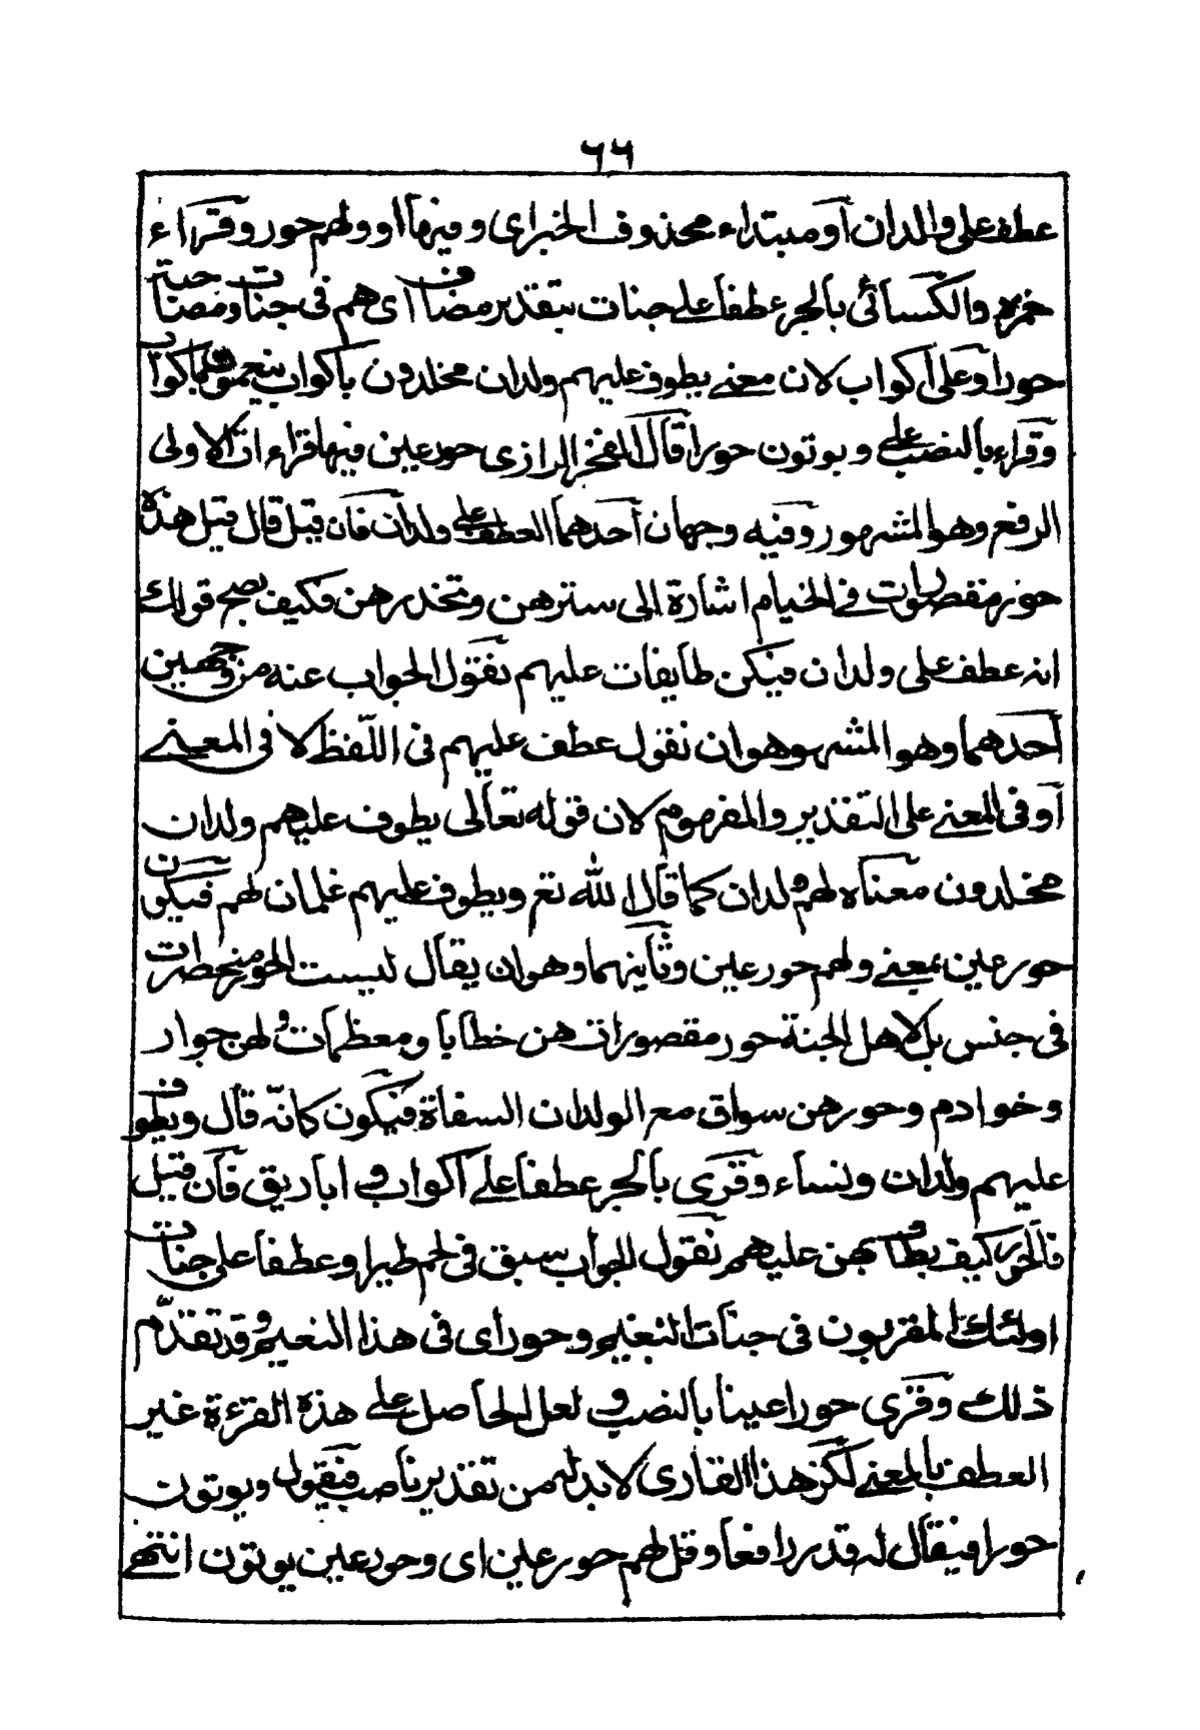 ٦٦
عطف على والدان أو مبتداء محذوف الخبر اى وفيها او ولهم حور وقراء
حمزه والكسائى بالجر عطفا على جنات بتقدير مضاف اى هم فى جنات ومصاحبة
حور او على أكواب لان معنى يطوف عليهم ولدان مخلدون باكواب ينعمون باكواب
وقراء بالنصب على ويوتون حورا قال الفخر الرازى حور عين فيها قراءات الاولى
الرفع وهو المشهور وفيه وجهان أحدهما العطف على ولدان فان قيل قال قبل هذه
حور مقصورات فى الخيام اشارة الى سترهن وتخديرهن فكيف يصح قولك
انه عطف على ولدان فيكن طايفات عليهم نقول الجواب عنه من وجهين
أحدهما وهو المشهور هو ان نقول عطف عليهم فى اللّفظ لا فى المعنى
أو فى المعنى على التقدير والمفهوم لان قوله تعالى يطوف عليهم ولدان
مخلدون معناه لهم ولدان كما قال الله تع ويطوف عليهم غلمان لهم فيكون
حور عين بمعنى ولهم حور عين وثانيهما وهو ان يقال ليست الحور منحصرات
فى جنس بل لاهل الجنة حور مقصورات هن خطايا ومعظمات ولهن جوار
وخوادم وحور هن سواق مع الولدان السقاة فيكون كانّه قال ويطوف
عليهم ولدان ونساء وقرى بالجر عطفا على أكواب و اباريق فان قيل
فالحور كيف يطاف بهن عليهم نقول الجواب سبق فى لحم طير او عطفا على جنات
اولئك المقربون فى جنات النعيم وحور اى فى هذا النعيم وقد تقدّم
ذلك وقرى حورا عينا بالنصب و لعل الحاصل على هذه القرءة غير
العطف بالمعنى لكن هذا القارى لا بد له من تقدير ناصب فيقول ويوتون
حورا فيقال له قدر رافعا وقل لهم حور عين اى وحور عين يوتون انتهى